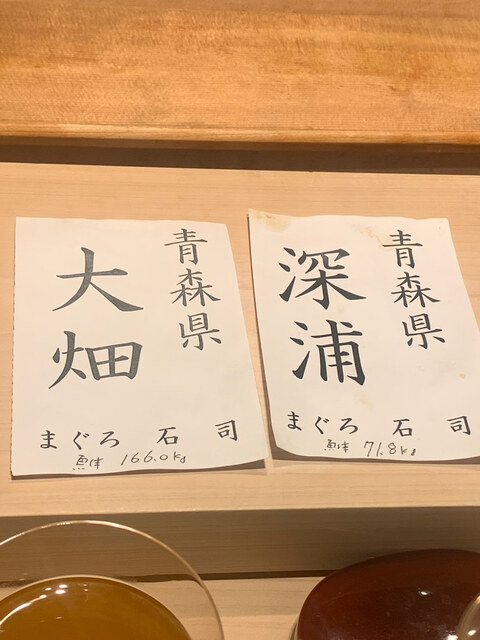 青森県
大畑
まぐろ 石司
魚体 166.0kg
青森県
深浦
まぐろ 石司
魚体 71.8kg